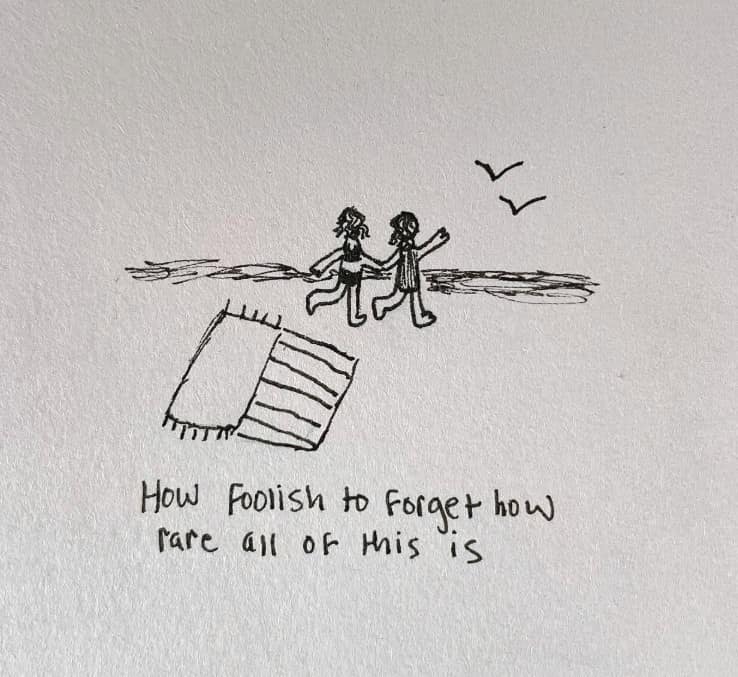 How Foolish to Forget how
rare all of this is